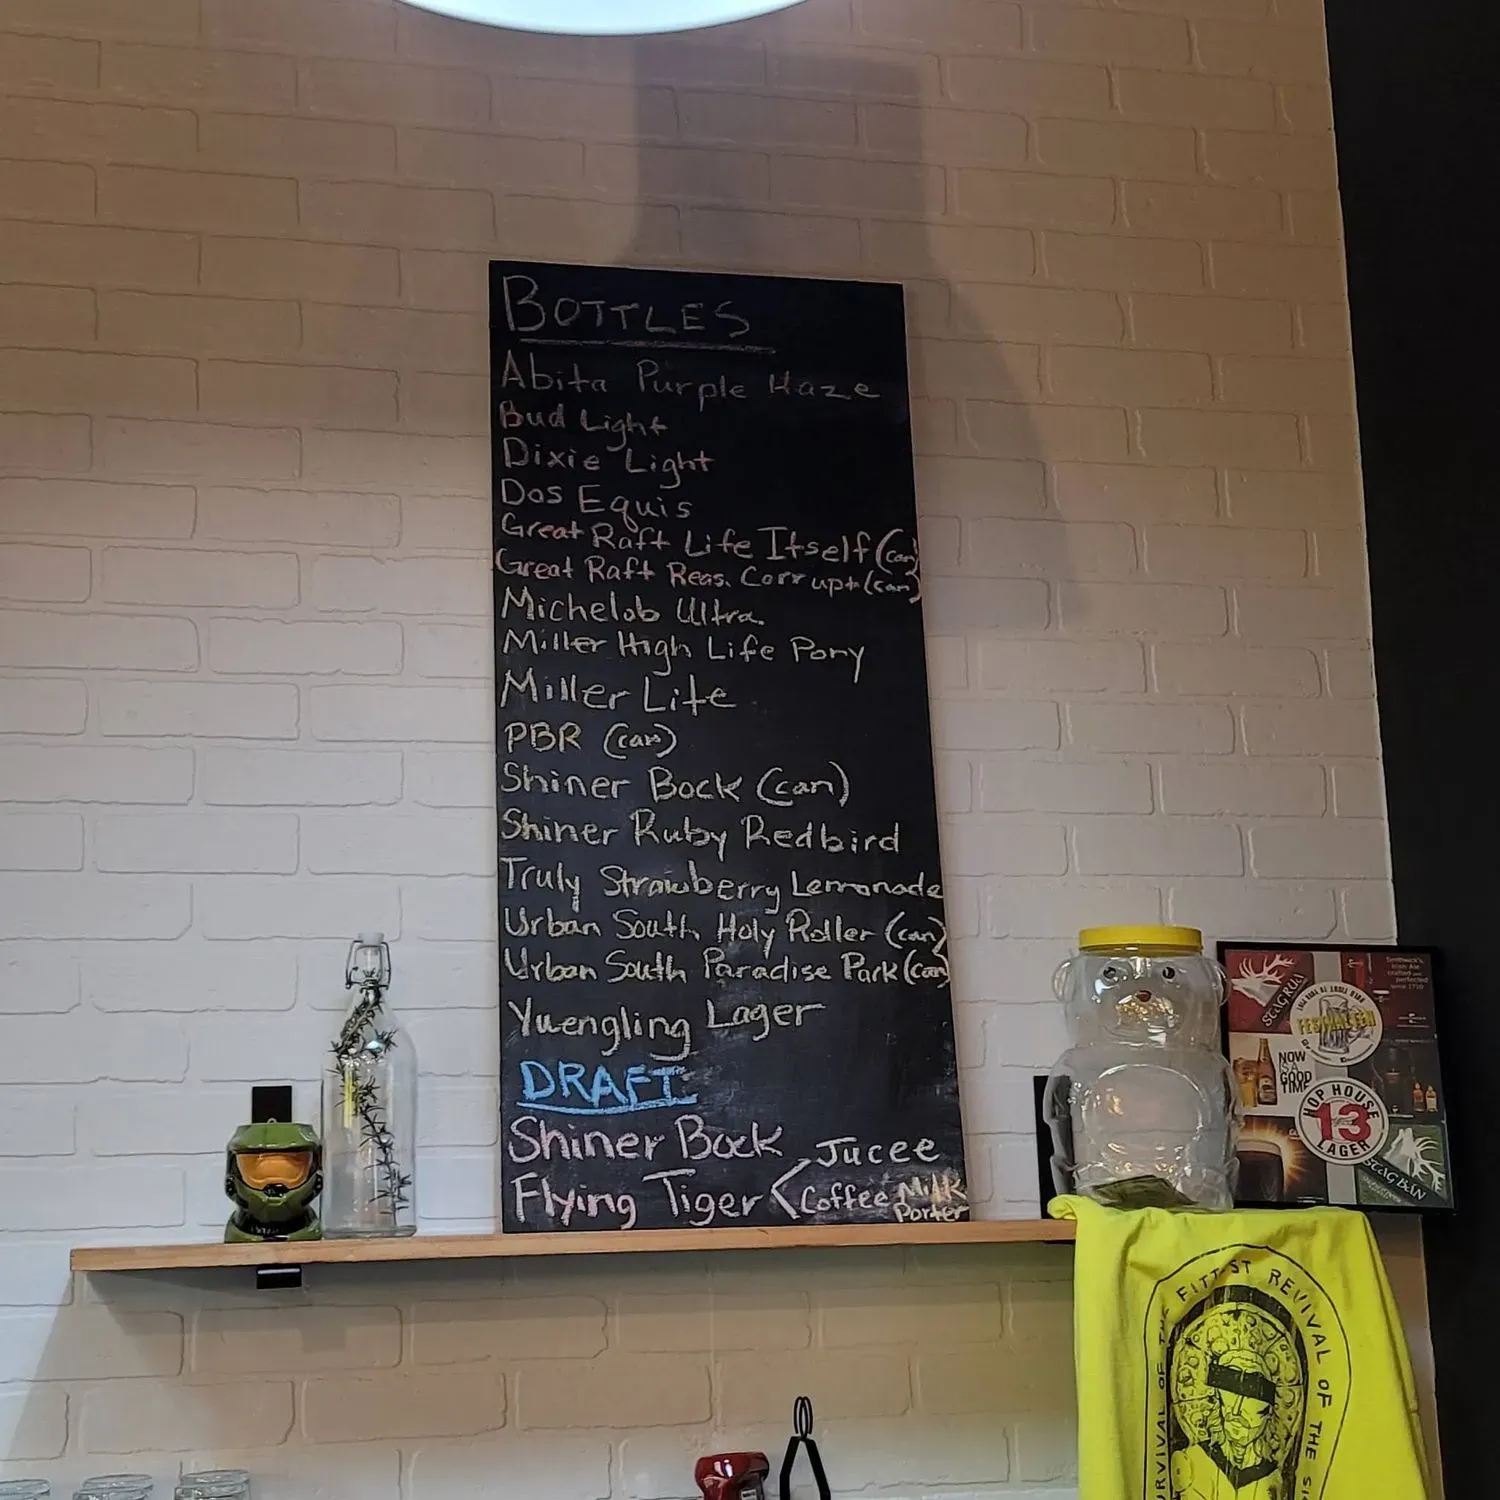 BOTTLES
Abita Purple Haze
Bud Light
Dixie Light
Dos Equis
Great Raft Life Itself (can)
Great Raft Reas. Corrupt (can)
Michelob Ultra
Miller High Life Pony
Miller Lite
PBR (can)
Shiner Bock (can)
Shiner Ruby Redbird
Truly Strawberry Lemonade
Urban South Holy Roller (can)
Urban South Paradise Park (can)
Yuengling Lager
DRAFT
Shiner Bock
Flying Tiger < Jucee
Coffee Milk
Porter
Smithwick's
Irish Ale
crafted and
perfected
since 1710
STAG RUN
NOW
IS A
GOOD
TIME
HOP HOUSE
13
LAGER
FITTEST REVIVAL OF THE